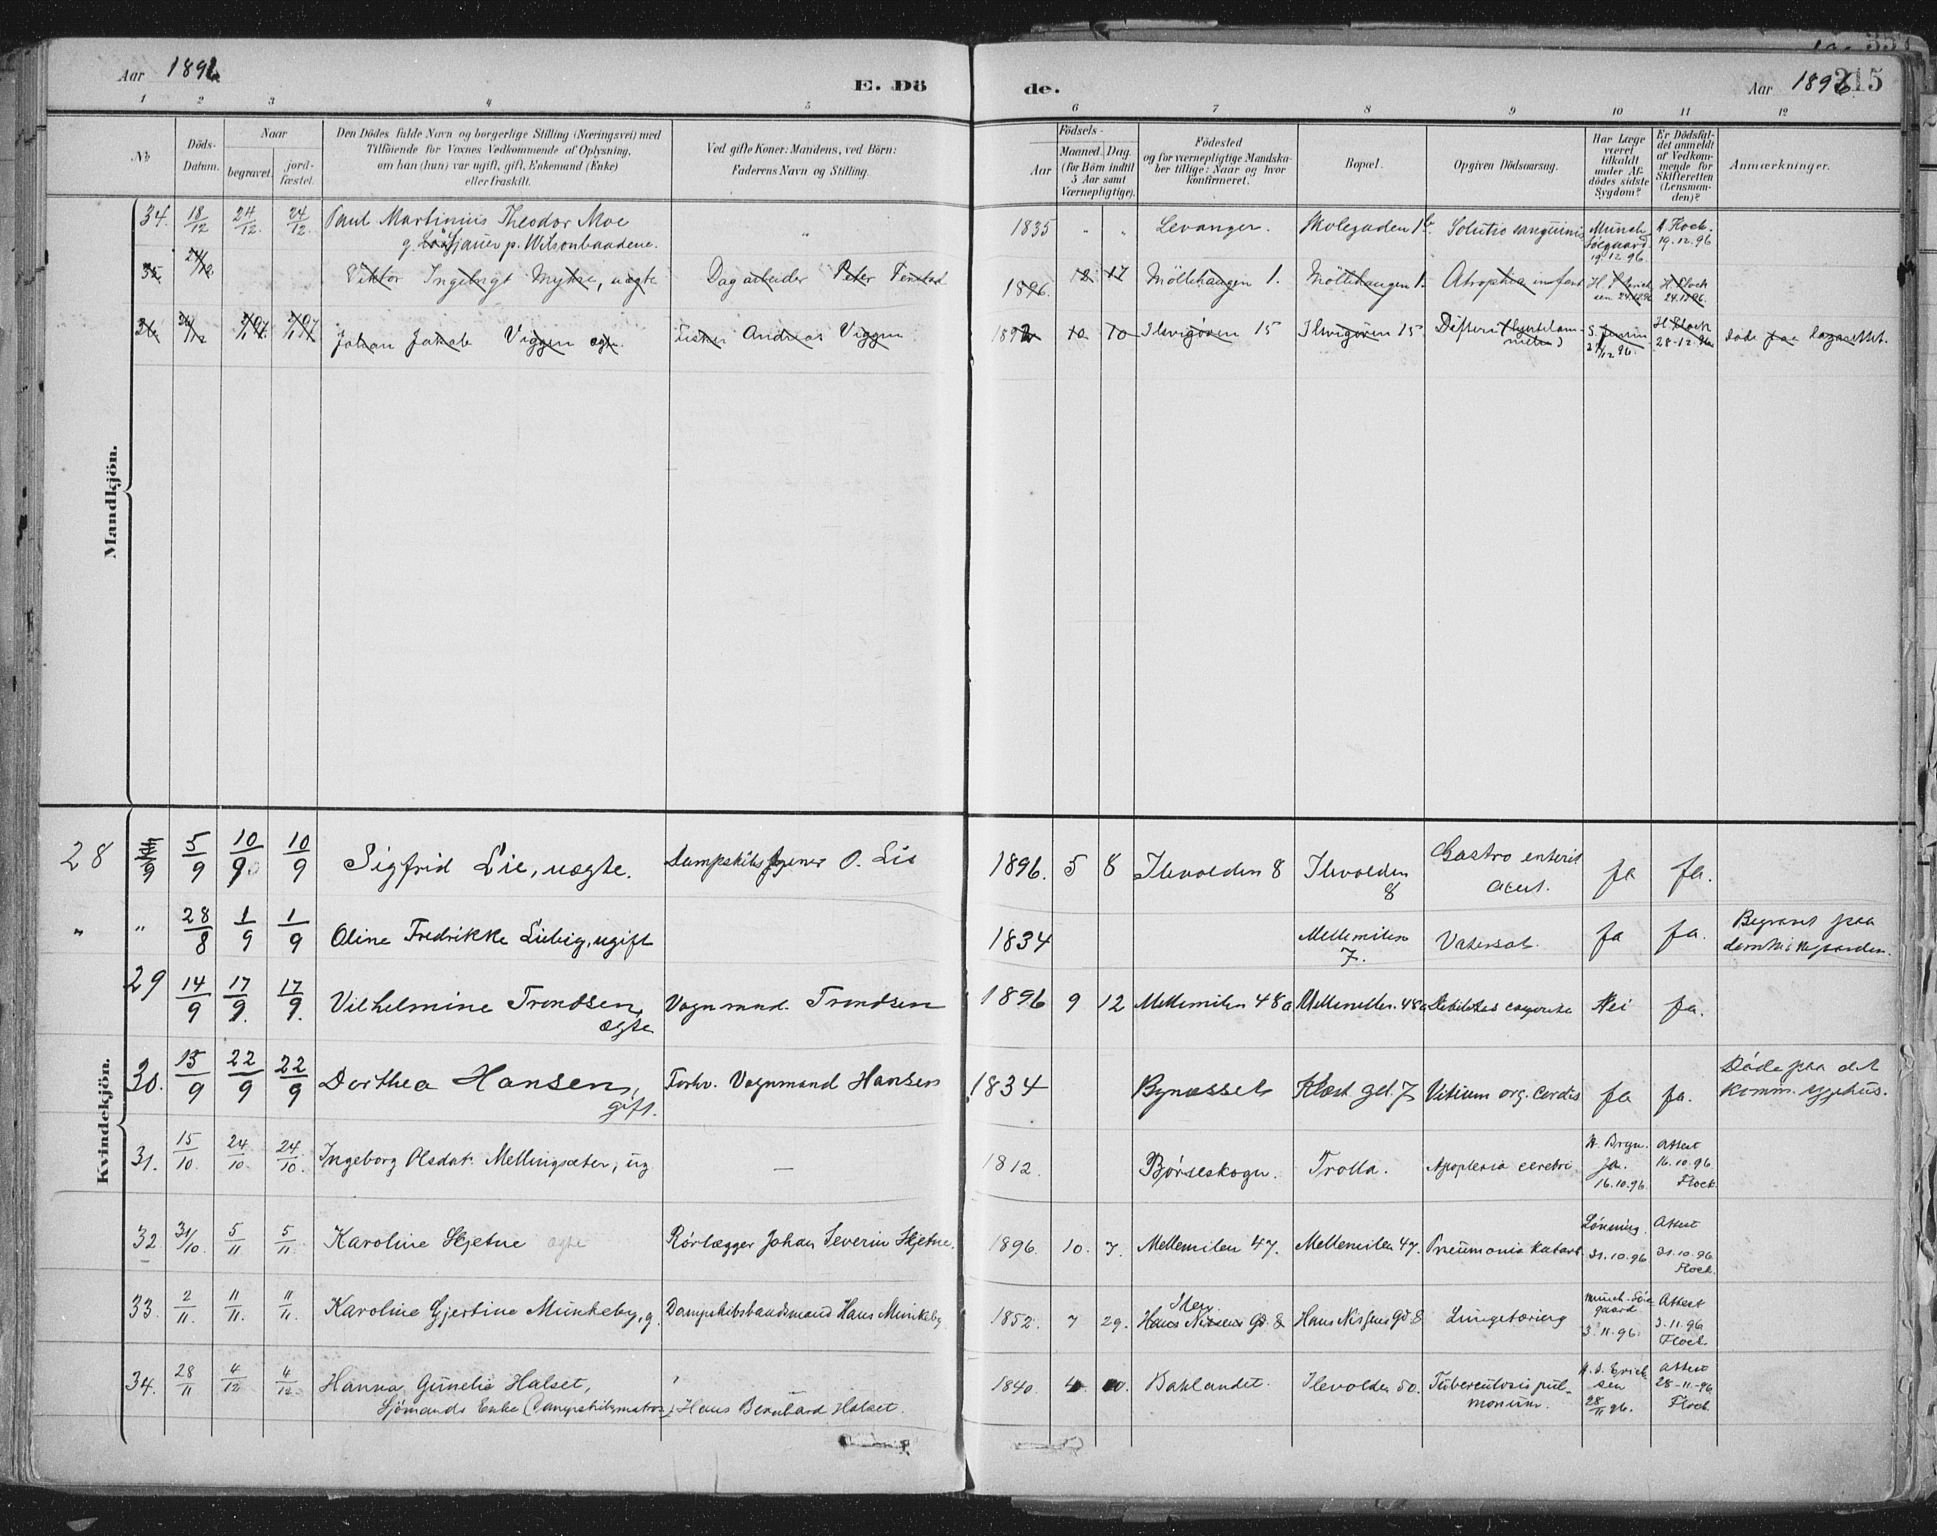 Aar 1896
E. Dö
de.
Aar 1896
215
1 2 3 4 5 6 7 8 9 10 11 12
No
Döds-Datum.
Naar
begravet.
jord-fæstet.
Den Dödes fulde Navn og borgerlige Stilling (Næringsvei) med
Tilföiende for Voxnes Vedkommende af Oplysning,
om han (hun) var ugift, gift, Enkemand (Enke)
eller fraskilt.
Ved gifte Koner: Mandens, ved Börn:
Faderens Navn og Stilling.
Födsels-
Aar
Maaned. Dag.
(for Börn indtil
5 Aar samt
Værnepligtige).
Födested
og for værnepligtige Mandska-
ber tillige: Naar og hvor
konfirmeret.
Bopæl.
Opgiven Dödsaarsag.
Har Læge
været
tilkaldt
under Af-
dödes sidste
Sygdom?
Er Dödsfal-
det anmeldt
af Vedkom-
mende for
Skifteretten
(Lensman-
den)?
Anmærkninger.
Mandkjön.
34. 18/12 24/12. 24/12. Paul Martinius Theodor Moe " 1835 " " Levanger. Skolegaden 1b. Solutio sanguinis Münch Søegaard 19.12.96. Flock. 19.12.96
g. Sjauer p. Wilsonbaadene.
35. 24/12. Viktor Ingebrigt Myhre, uægte Dagarbeider Peter 1896. 12. 17 Möllehaugen 1. Möllehaugen 1. Atrophia infant 24.12.96 H. Flock 24.12.96.
36 Johan Jakob Viggen ægte. Fisker Andreas Viggen 1892 10 10 Ilevigören 15 Ilevigören 15 Difteri 28/12 96. H. Flock 28-12.96 døde paa Lazarettet.
Kvindekjön.
28 5/9 10/9 10/9 Sigfrid Lie, uægte. Dampskibsfyrbøder O. Lie 1896. 5 8 Ilevolden 8 Ilevolden 8 Gastro enterit acut. ja ja.
" " 28/8 1/9 1/9 Oline Fredrikke Liebig, ugift 1834 Mellemilen 7. Vatersot. ja ja. Begravet paa domkirkegaarden.
29 14/9 17/9. 17/9. Vilhelmine Trondsen, ægte Vognmand. Trondsen 1896 9 12 Mellemilen 48a Mellemilen. 48a Debilitas congenita Nei ja.
30. 15/9 22/9 22/9 Dorthea Hansen, gift. Forhv. Vognmand Hansen 1834 Bynæsset Klost. gd. 7 Vitium org. cordis ja ja. Døde paa det komm. sygehus.
31. 15/10. 24/10. 24/10. Ingeborg Olsdat. Mellingsæter, ug — 1812. Børseskogn. Trolla. Apoplexia cerebri Ja. 16.10.96. Attest 16.10.96. Flock.
32 31/10. 5/11 5/11 Karoline Skjetne ægte Rørlægger Johan Severin Skjetne. 1896. 10. 7. Mellemilen 47. Mellemilen 47. Pneumonia katarrh. Lønning. 31.10.96 Attest 31.10.96 Flock.
33. 2/11. 11/11. 11/11. Karoline Gjertine Munkeby, g. Dampskibsbaadsmand Hans Munkeby 1852. 7 29. Ilen Hans Nissens Gd. 8 Hans Nissens Gd 8 Lungetæring Münch-Søegaard 3.11.96. Attest 3.11.96 Flock.
34. 28/11 4/12 4/12 Hanna Gunelie Halset, 1840. Baklandet. Ilevolden 50. Tuberculosis pulmonum. Ericksen 28/11 96. Attest 28-11-96 Flock.
Sjømands Enke (Dampskibsmatros) Hans Bernhard Halset.